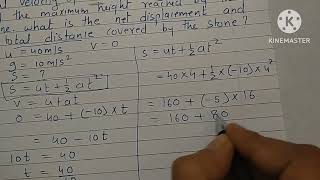 al velocity of
the maximum height reached by
ne, what is the net displacement and
total distance covered by the stone?
u = 40m/s      v = 0
g = 10m/s²
s = ?
s = ut + ½at²
v = u + at
0 = 40 + (-10) × t
= 40 - 10t
10t = 40
t = 40
s = ut + ½at²
= 40×4 + ½×(-10)×4²
= 160 + (-5)×16
= 160 + 80
KINEMASTER